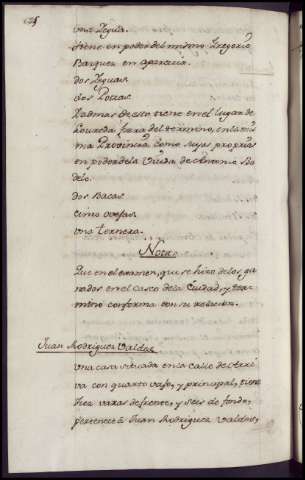 una Yegua.
Tiene en poder del mismo Gregorio
Barquez en aparcería.
dos Yeguas
dos Potras
Y ademas de esto tiene en el lugar de
Loureda fuera del termino, en la mis
ma Provincia como suyas proprias
en poder de la Viuda de Antonio
delo.
dos Bacas
cinco ovejas
una ternera.
Nota
Que en el examen, que se hizo de los ga
nados en el casco de la Ciudad, y ter
mino conforma con su relacion.
Juan Rodriguez Valdes
Una casa situada en la calle de Arri
va con quarto vajo, y principal, tiene
diez varas de frente, y seis de fondo,
pertenece à Juan Rodriguez Valdes,